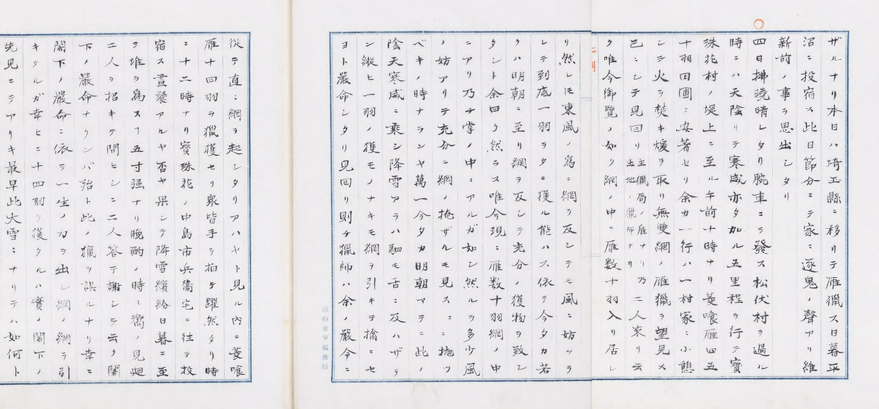 ザルナリ本日ハ埼玉縣ニ移リテ雁猟ス日暮平
沼ニ投宿ス此日節分ニテ家ニ逐鬼ノ聲アリ維
新前ノ事ヲ思出シタリ
四日拂曉晴レタリ腕車ニテ發ス松伏村ヲ過ル
時ニハ天陰リテ寒威亦タ加ル五里程ヲ行テ寳
珠花村ノ堤上ニ至ル午前十時ナリ菱喰雁四五
十羽田圃ニ安着セリ余カ一行ハ一村家ニ小憩
シテ火ヲ焚キ煖ヲ取リ無雙網ノ雁猟ヲ望見ス
已ニシテ見回リ主猟局ノ雁ナリ乃二人來リ云
ク唯今御覽ノ如ク網ノ中ニ雁数十羽入リ居レ
リ然レモ東風ノ為ニ網ヲ反シテモ風ニ妨ケラ
レテ到底一羽ヲタニ獲ル能ハス依テ今タカ若
クハ明朝ニ至リ網ヲ反シテ充分ノ獲物ヲ致シ
タシト余曰ク然ラス唯今現ニ雁数十羽網ノ中
ニアリ乃チ掌ノ中ニアルガ如シ然ルヲ多少風
ノ妨アリテ充分ニ網ノ掩ザルモ見スニ抛ツ
ベキノ時ナランヤ萬一今タカ明朝マテニ此ノ
陰天寒威ニ乗シ降雪アラハ馳モ舌ニ及ハザラ
ン縦ヒ一羽ノ獲モノナキモ網ヲ引キテ擒ニセ
ヨト嚴命シタリ見回リ則チ猟師ハ余ノ嚴令ニ
從テ直ニ網ヲ起シタリアハヤト見ル内ニ菱喰
雁十四羽ヲ猟獲セリ衆皆手ヲ拍テ躍然タリ時
ニ十二時ナリ寳珠花ノ中島市兵衛宅ニ往テ投
宿ス
二人ヲ招キテ問ヒシニ二人答テ謝シテ云ク閣
下ノ嚴命ナクンバ殆ト此ノ猟ヲ誤ルナリ幸ニ
閣下ノ嚴命ニ依テ一生ノ力ヲ出シ網ノ綱ヲ引
キタルガ幸ヒニ十四羽ヲ獲タルハ實ニ閣下ノ
先見ニテアリキ最早此大雪ニナリテハ如何ト